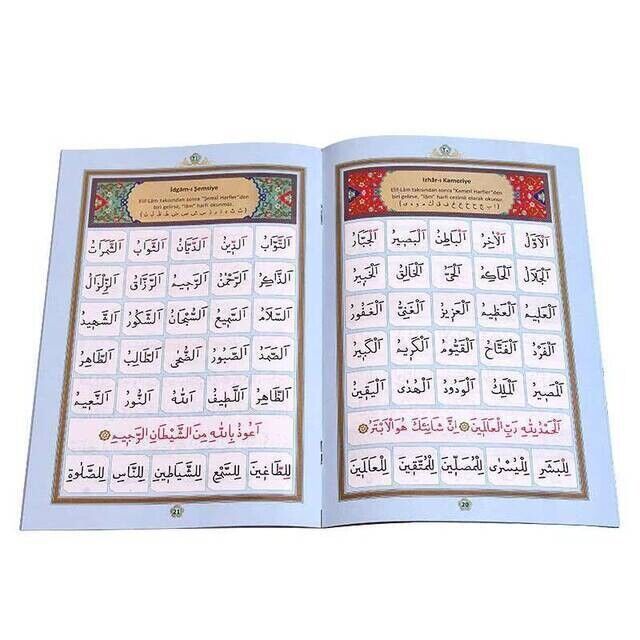 ٢٠
Izhâr-ı Kameriye
Elif-Lâm takısından sonra "Kameri Harfler"den
biri gelirse, "lâm" harfi cezimli olarak okunur.
اَلْاَوَّلُ اَلْاٰخِرُ اَلْبَاطِنُ اَلْبَصِيرُ اَلْجَبَّارُ
اَلْجَلَالُ اَلْحَاكِمُ اَلْحَىُّ اَلْخَالِقُ اَلْخَبِيرُ
اَلْعَلِيمُ اَلْعَظِيمُ اَلْعَزِيزُ اَلْغَنِىُّ اَلْغَفُورُ
اَلْفَرْدُ اَلْفَتَّاحُ اَلْقَيُّومُ اَلْكَرِيمُ اَلْكَبِيرُ
اَلْمَصِيرُ اَلْمَلِكُ اَلْوَدُودُ اَلْهُدٰى اَلْيَقِينُ
اَلْحَمْدُ لِلّٰهِ رَبِّ الْعَالَمِينَ اِنَّ شَانِئَكَ هُوَ الْاَبْتَرُ
لِلْبَشَرِ لِلْيُسْرٰى لِلْمُصَلِّينَ لِلْمُتَّقِينَ لِلْعَالَمِينَ
20
٢١
İdgâm-ı Şemsiye
Elif-Lâm takısından sonra "Şemsî Harfler"den
biri gelirse, "lâm" harfi okunmaz.
اَلتَّوَّابُ اَلدِّينُ اَلدَّيَّانُ اَلثَّوَابُ اَلثَّمَرَاتُ
اَلذَّاكِرُ اَلرَّحْمٰنُ اَلرَّحِيمُ اَلرَّزَّاقُ اَلزِّلْزَالُ
اَلسَّلَامُ اَلسَّمِيعُ اَلسُّبْحَانُ اَلشَّكُورُ اَلشَّهِيدُ
اَلصَّمَدُ اَلصَّبُورُ اَلضُّحٰى اَلطَّالِبُ اَلطَّاهِرُ
اَلظَّاهِرُ اَللَّطِيفُ اَللّٰهُ اَلنُّورُ اَلنَّعِيمُ
اَعُوذُ بِاللّٰهِ مِنَ الشَّيْطَانِ الرَّجِيمِ
لِلطَّاغِينَ لِلسَّمْعِ لِلشَّيَاطِينِ لِلنَّاسِ لِلصَّلٰوةِ
21